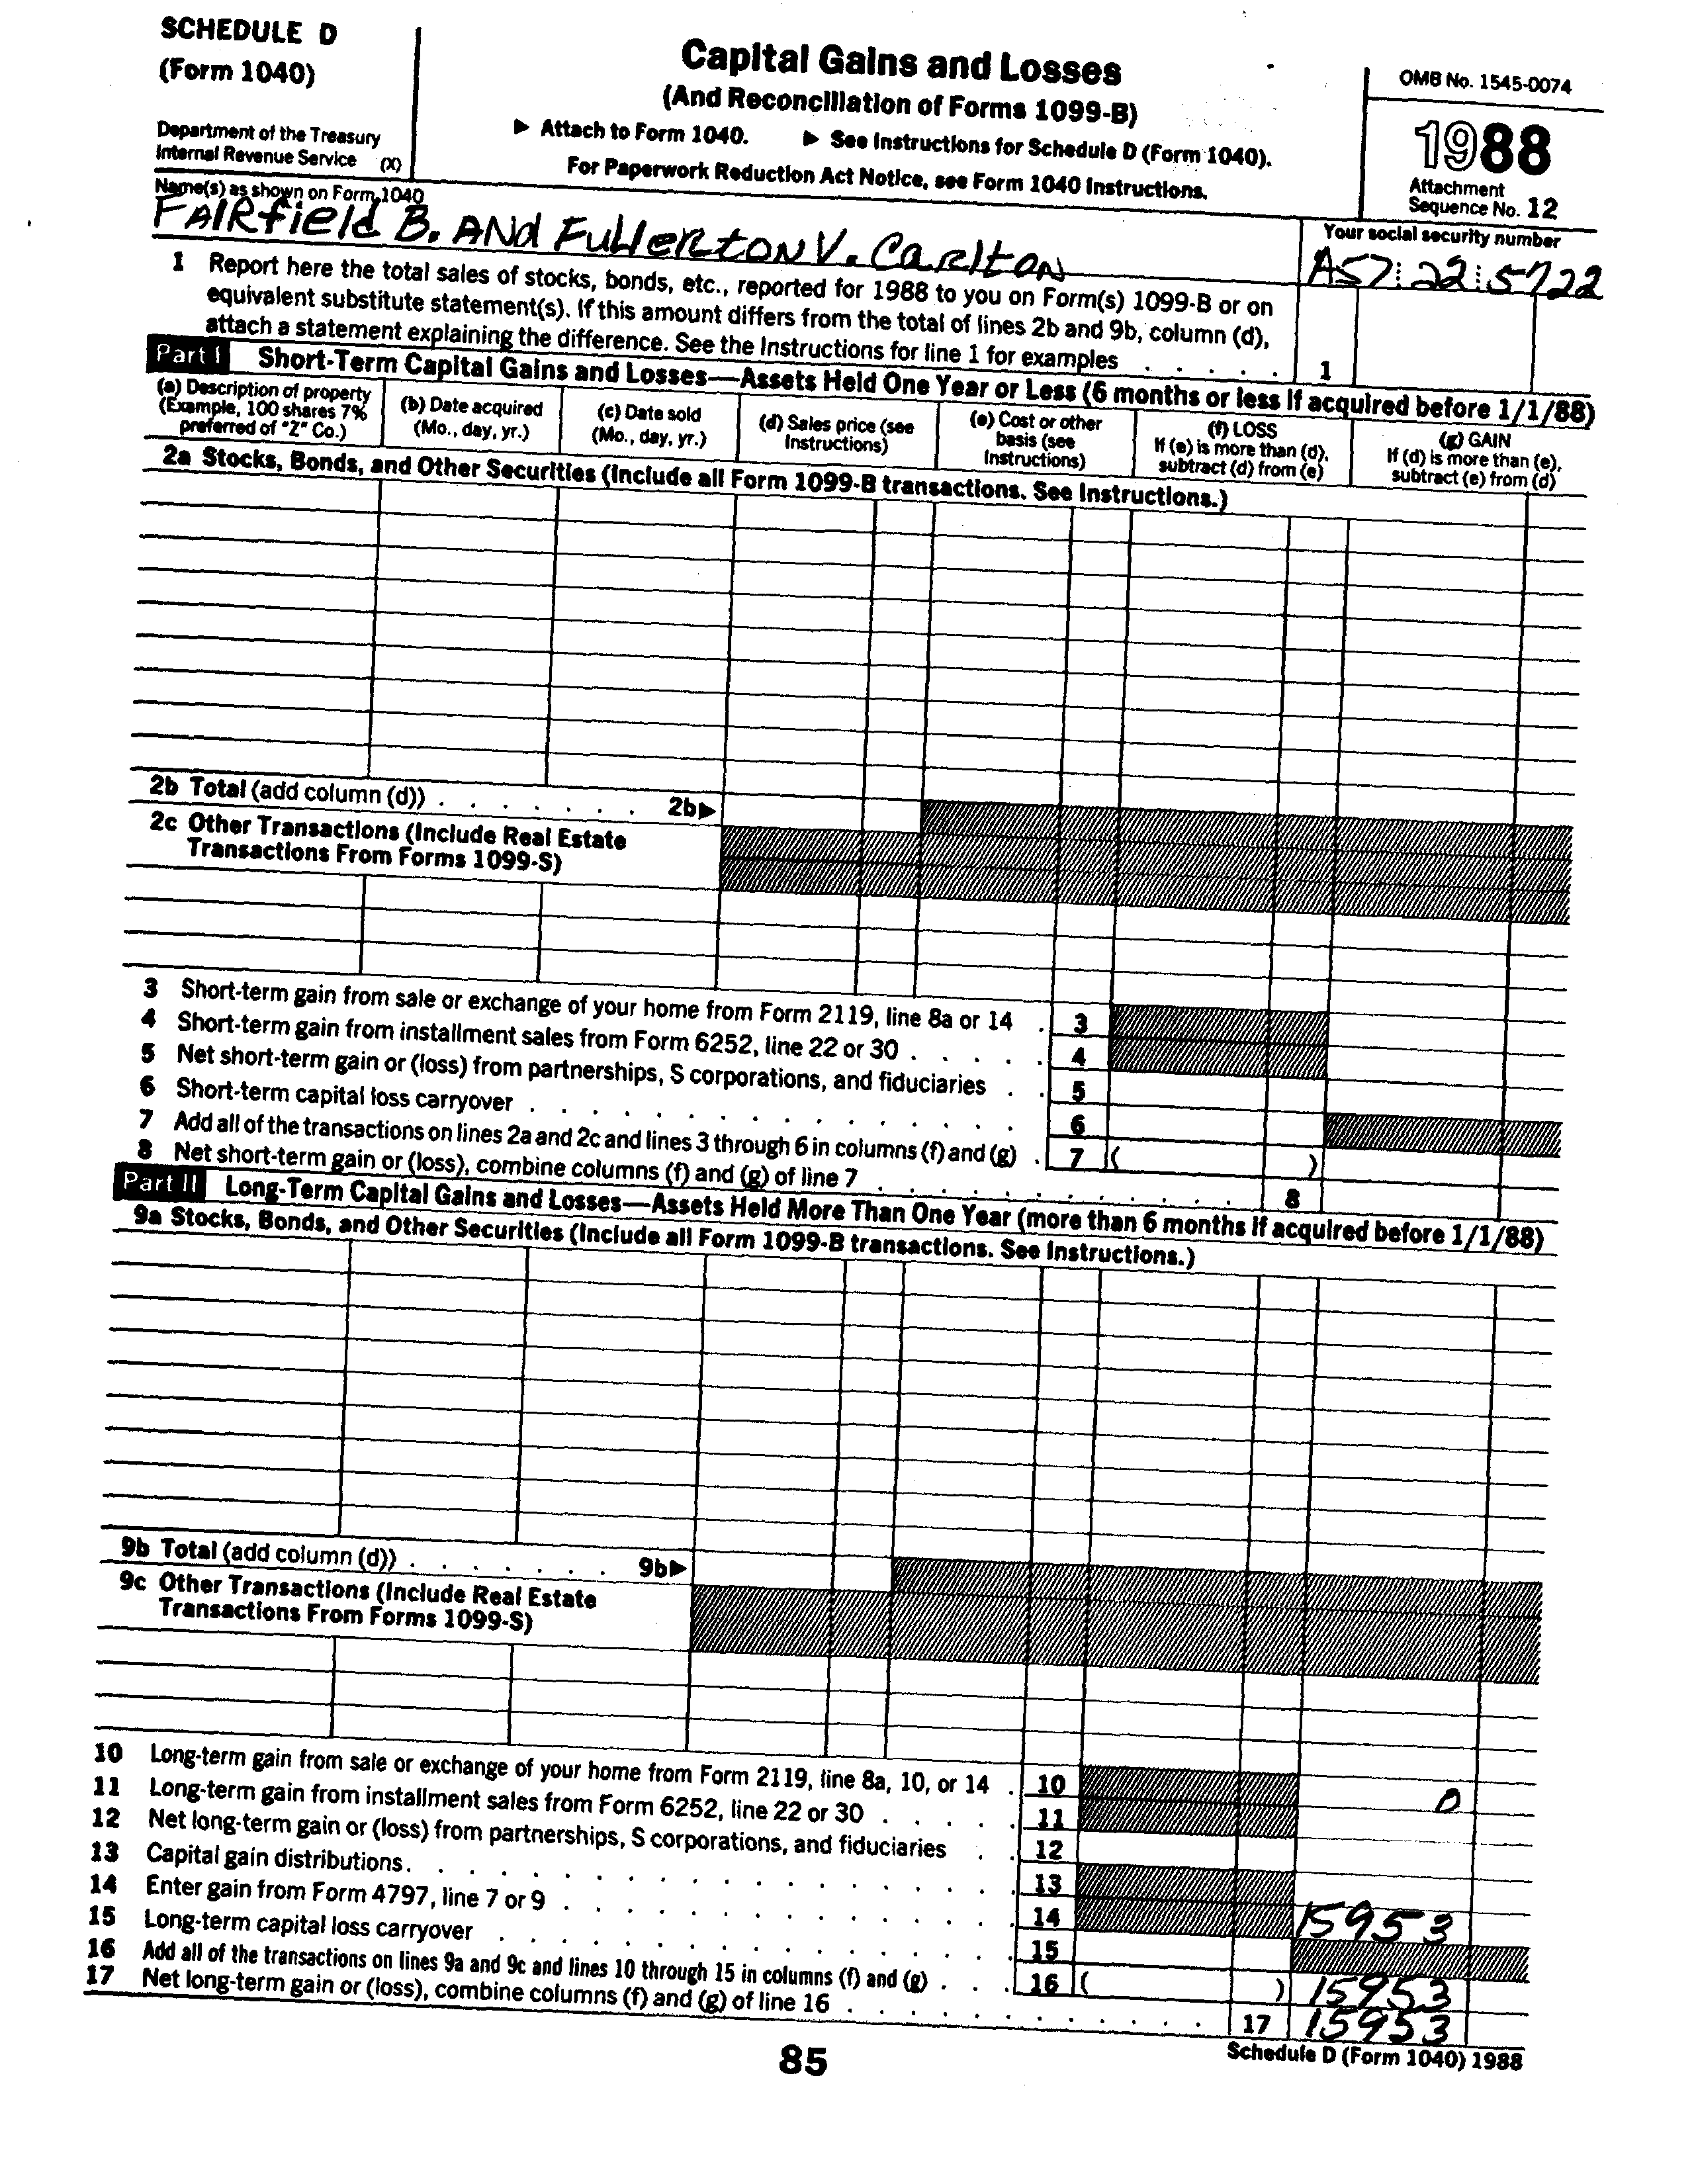 SCHEDULE D
(Form 1040)
Department of the Treasury
Internal Revenue Service (X)
Capital Gains and Losses
(And Reconciliation of Forms 1099-B)
▶ Attach to Form 1040. ▶ See Instructions for Schedule D (Form 1040).
For Paperwork Reduction Act Notice, see Form 1040 Instructions.
OMB No. 1545-0074
1988
Attachment
Sequence No. 12
Name(s) as shown on Form 1040
FAIRfield B. ANd FullERtON V. CaRltON
Your social security number
A57 22 5722
1 Report here the total sales of stocks, bonds, etc., reported for 1988 to you on Form(s) 1099-B or on
equivalent substitute statement(s). If this amount differs from the total of lines 2b and 9b, column (d),
attach a statement explaining the difference. See the Instructions for line 1 for examples . . . . . 1
Part I Short-Term Capital Gains and Losses—Assets Held One Year or Less (6 months or less if acquired before 1/1/88)
(a) Description of property
(Example, 100 shares 7%
preferred of "Z" Co.)
(b) Date acquired
(Mo., day, yr.)
(c) Date sold
(Mo., day, yr.)
(d) Sales price (see
Instructions)
(e) Cost or other
basis (see
Instructions)
(f) LOSS
If (e) is more than (d),
subtract (d) from (e)
(g) GAIN
If (d) is more than (e),
subtract (e) from (d)
2a Stocks, Bonds, and Other Securities (Include all Form 1099-B transactions. See Instructions.)
2b Total (add column (d)) . . . . . . . 2b▶
2c Other Transactions (Include Real Estate
Transactions From Forms 1099-S)
3 Short-term gain from sale or exchange of your home from Form 2119, line 8a or 14 . 3
4 Short-term gain from installment sales from Form 6252, line 22 or 30 . . . . . 4
5 Net short-term gain or (loss) from partnerships, S corporations, and fiduciaries . . 5
6 Short-term capital loss carryover . . . . . . . . . . . . . . . 6
7 Add all of the transactions on lines 2a and 2c and lines 3 through 6 in columns (f) and (g) . 7 ( )
8 Net short-term gain or (loss), combine columns (f) and (g) of line 7 . . . . . . . . . . . . 8
Part II Long-Term Capital Gains and Losses—Assets Held More Than One Year (more than 6 months if acquired before 1/1/88)
9a Stocks, Bonds, and Other Securities (Include all Form 1099-B transactions. See Instructions.)
9b Total (add column (d)) . . . . . . . 9b▶
9c Other Transactions (Include Real Estate
Transactions From Forms 1099-S)
10 Long-term gain from sale or exchange of your home from Form 2119, line 8a, 10, or 14 . 10 0
11 Long-term gain from installment sales from Form 6252, line 22 or 30 . . . . . 11
12 Net long-term gain or (loss) from partnerships, S corporations, and fiduciaries . . 12
13 Capital gain distributions . . . . . . . . . . . . . . . . 13
14 Enter gain from Form 4797, line 7 or 9 . . . . . . . . . . . . . 14 15953
15 Long-term capital loss carryover . . . . . . . . . . . . . . 15
16 Add all of the transactions on lines 9a and 9c and lines 10 through 15 in columns (f) and (g) . . . 16 ( ) 15953
17 Net long-term gain or (loss), combine columns (f) and (g) of line 16 . . . . . . . . . . . 17 15953
85
Schedule D (Form 1040) 1988